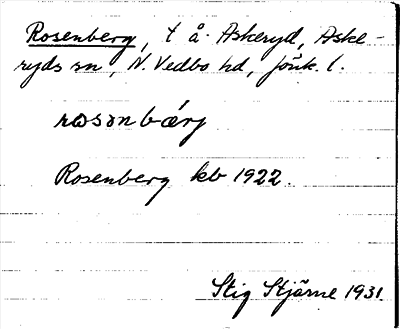 Rosenberg, t å. Askeryd, Aske-
ryds sn, N. Vedbo hd, Jönk. l.
rosənbärj
Rosenberg kb 1922.
Stig Stjärne 1931.